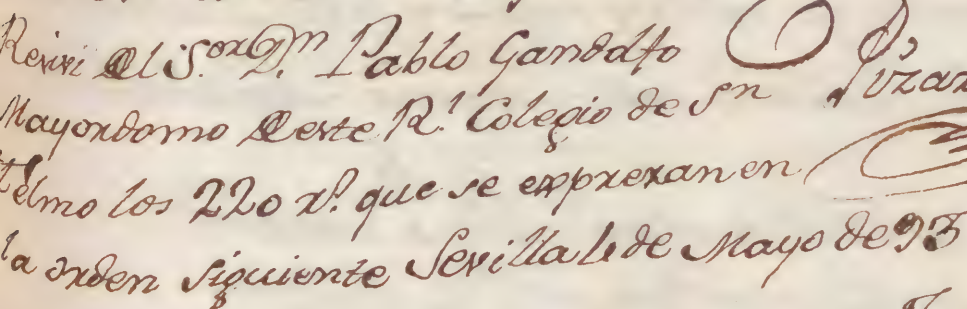 Recivi del S.or D.n Pablo Gandolfo
Mayordomo deeste R.l Colegio de Sn
Telmo los 220 r.s que se expresan en
la orden siguiente Sevilla 4 de Mayo de 93